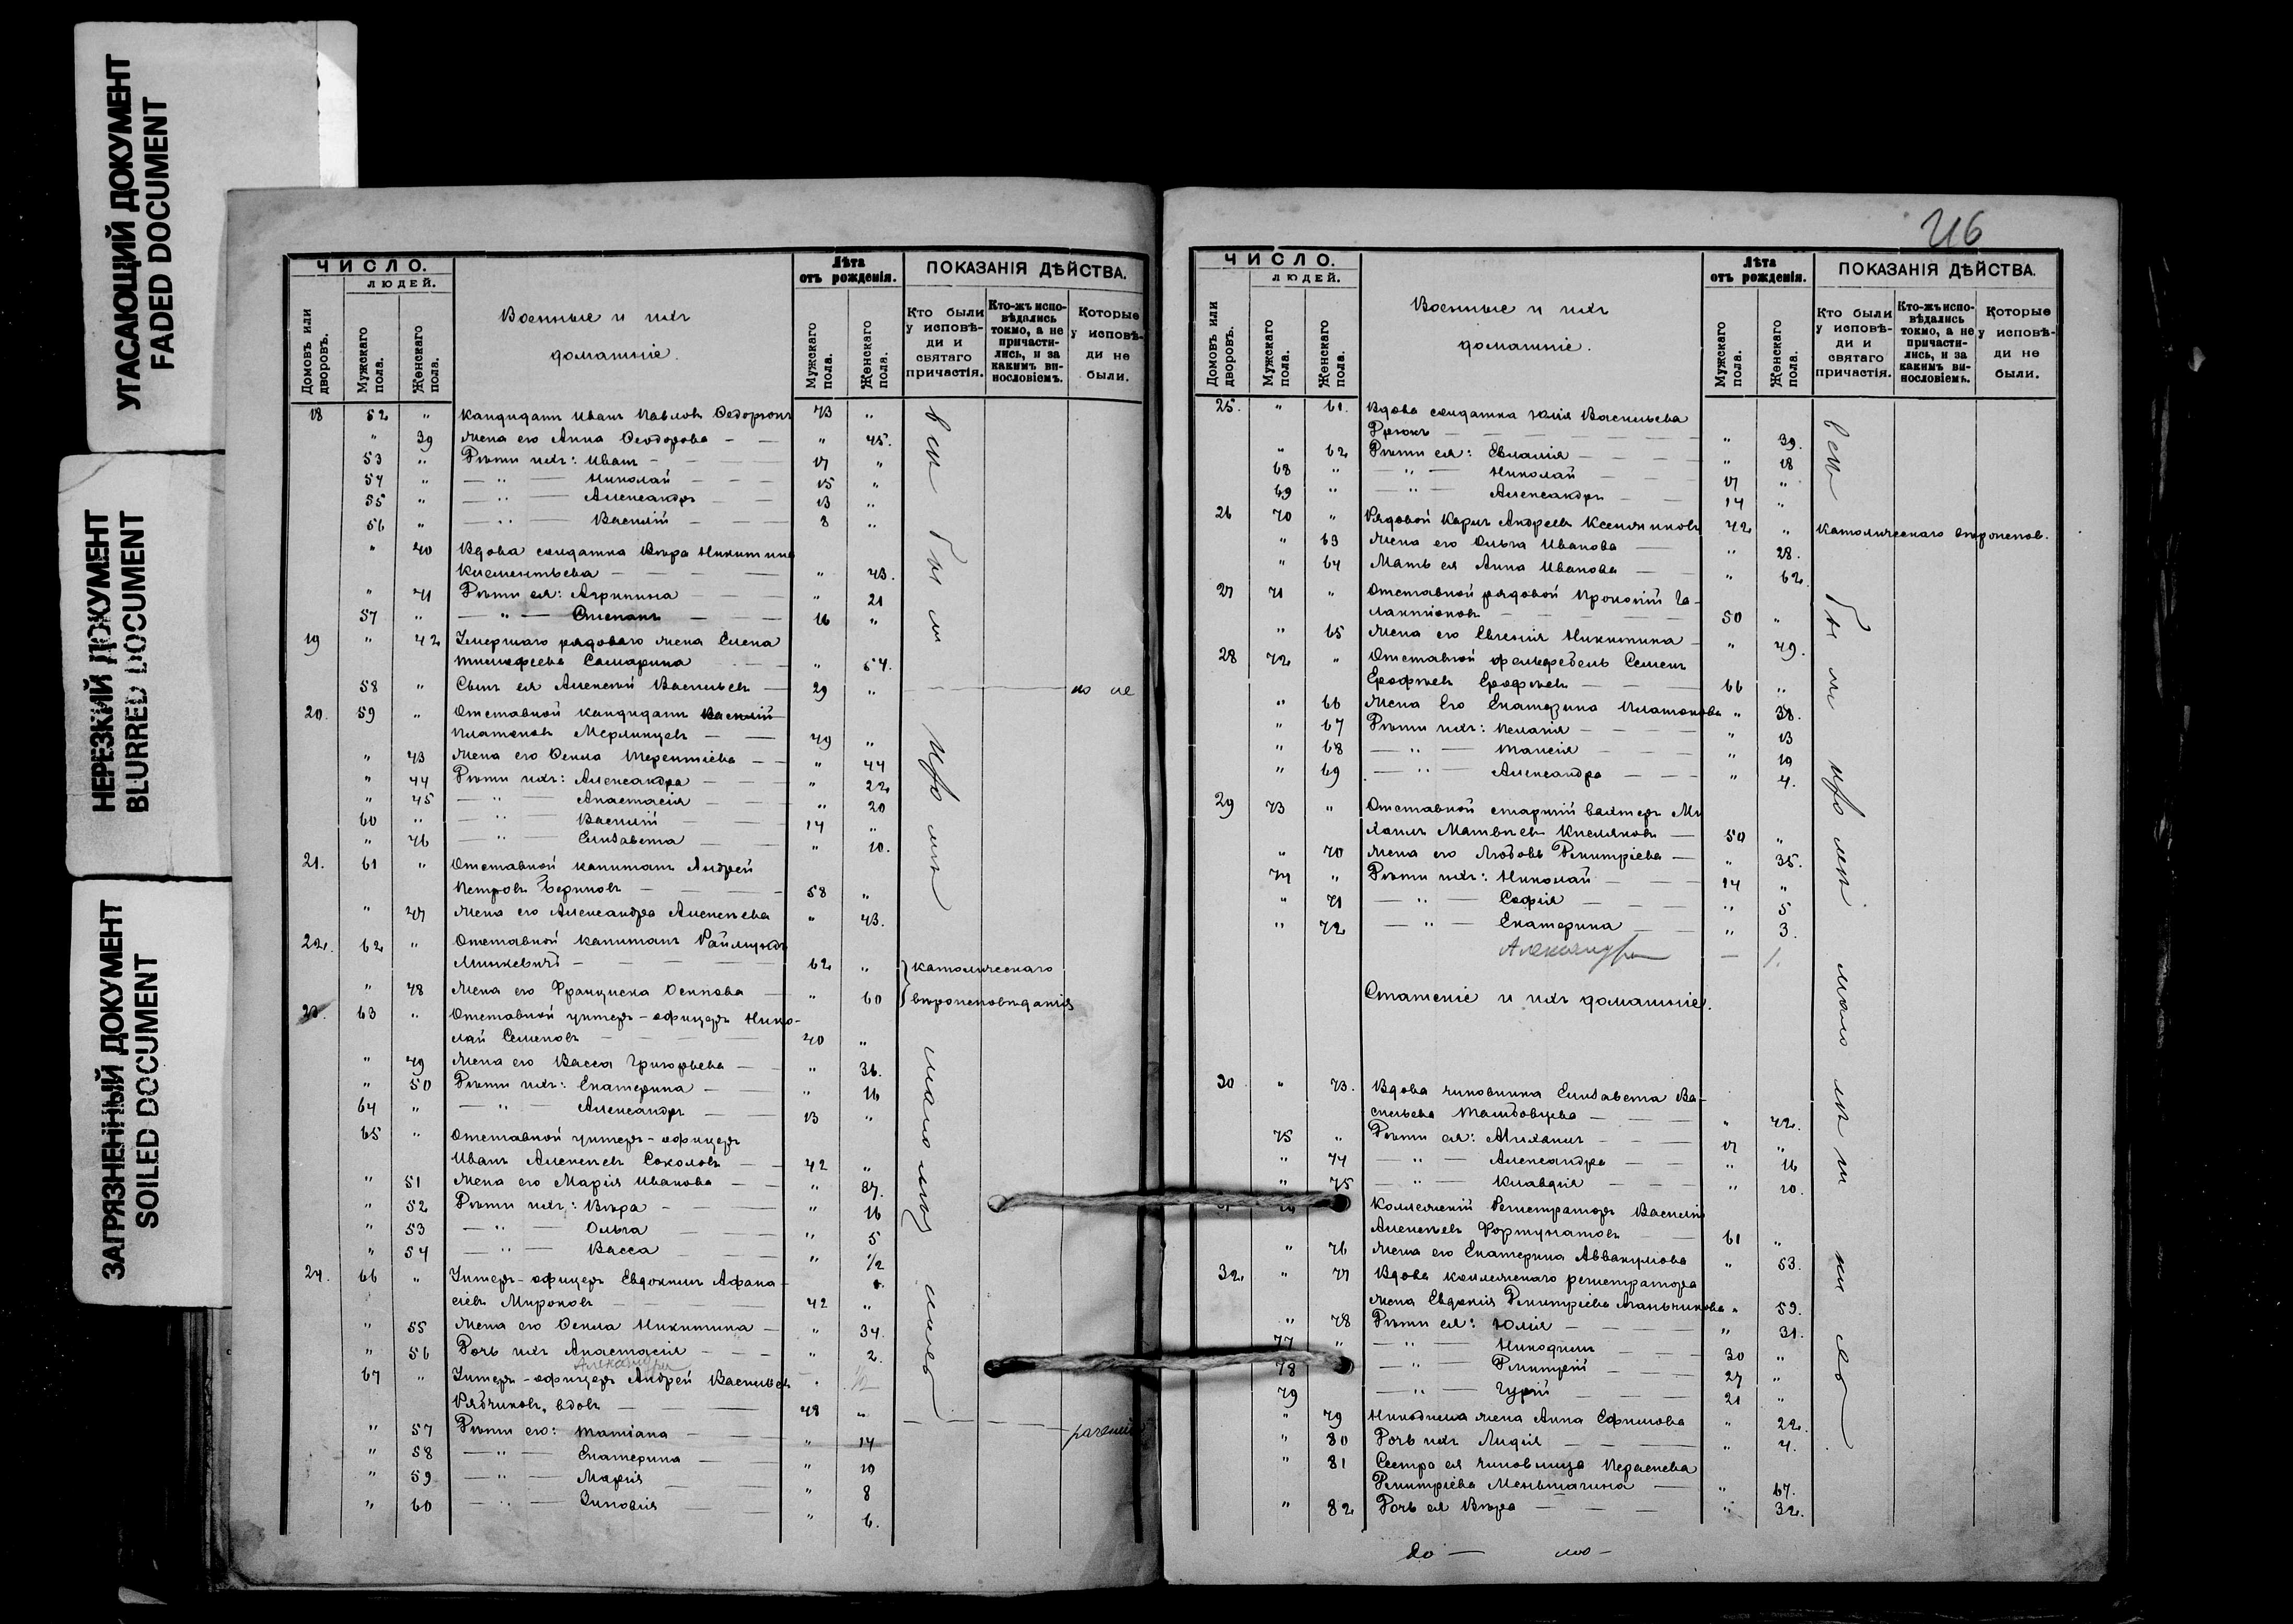 УГАСАЮЩИЙ ДОКУМЕНТ
FADED DOCUMENT
НЕРЕЗКИЙ ДОКУМЕНТ
BLURRED DOCUMENT
ЗАГРЯЗНЕННЫЙ ДОКУМЕНТ
SOILED DOCUMENT
ЧИСЛО.
ЛЮДЕЙ.
Домовъ или дворовъ.
Мужскаго пола.
Женскаго пола.
Военные и ихъ
домашніе.
Лѣта
отъ рожденія.
Мужскаго пола.
Женскаго пола.
ПОКАЗАНІЯ ДѢЙСТВА.
Кто были у исповѣ-ди и святаго причастія.
Кто-жъ испо-вѣдались токмо, а не причасти-лись, и за какимъ ви-нословіемъ.
Которые у исповѣ-ди не были.
18 52 " Кандидатъ Иванъ Павловъ 43 "
" 39 Жена его Анна Ѳеодорова — " 45.
53 " Дѣти ихъ: Иванъ — 17 "
54 " — " — Николай — 15 "
55 " — " — Александръ — 13 "
56 " — " — Василій — 8 "
" 40 Вдова солдатка Вѣра Никитина
Клементьева — " 43.
" 41 Дѣти ея: Агрипина — " 21
57 " — " — Степанъ — 16 "
19 " 42 Умершаго рядоваго жена Елена
Тимофеева Самарина — " 64.
58 " Сынъ ея Алексѣй Васильевъ — 29 "
20. 59 " Отставной кандидатъ Василій
Платоновъ — 49 "
" 43 Жена его Ѳекла Терентіева — " 44
" 44 Дѣти ихъ: Александра — " 22
" 45 — " — Анастасія — " 20
60 " — " — Василій — 14 "
" 46 — " — Елисавета — " 10.
21. 61 " Отставной капитанъ Андрей
Петровъ — 58 "
" 47 Жена его Александра Алексѣева " 43.
22. 62 " Отставной капитанъ Раймундъ
Минкевичъ — 62 " католическаго
" 48 Жена его Франциска Осипова — " 60 вѣроисповѣданія
23. 63 " Отставной унтеръ-офицеръ Нико-
лай Семеновъ — 40 "
" 49 Жена его Васса Григорьева — " 36.
" 50 Дѣти ихъ: Екатерина — " 16
64 " — " — Александръ — 13 "
65 " Отставной унтеръ-офицеръ
Иванъ Алексѣевъ Соколовъ — 42 "
" 51 Жена его Марія Иванова — " 37.
" 52 Дѣти ихъ: Вѣра — " 16
" 53 — " — Ольга — " 5
" 54 — " — Васса — " 1/2
24. 66 " Унтеръ-офицеръ Евдокимъ Афана-
сіевъ Мироновъ — 42 "
" 55 Жена его Ѳекла Никитина — " 34.
" 56 Дочь ихъ Анастасія — " 2.
Александра 1/2
67 " Унтеръ-офицеръ Андрей Васильевъ
Рябчиковъ, вдовъ — 48 "
" 57 Дѣти его: Татіана — " 14
" 58 — " — Екатерина — " 10
" 59 — " — Марія — " 8
" 60 — " — Зиновія — " 6.
всѣ были
малолѣ
416
ЧИСЛО.
ЛЮДЕЙ.
Домовъ или дворовъ.
Мужскаго пола.
Женскаго пола.
Военные и ихъ
домашніе.
Лѣта
отъ рожденія.
Мужскаго пола.
Женскаго пола.
ПОКАЗАНІЯ ДѢЙСТВА.
Кто были у исповѣ-ди и святаго причастія.
Кто-жъ испо-вѣдались токмо, а не причасти-лись, и за какимъ ви-нословіемъ.
Которые у исповѣ-ди не были.
25. " 61. Вдова солдатка Юлія Васильева
" 39.
" 62 Дѣти ея: Евлалія — " 18
68 " — " — Николай — 17 "
69 " — " — Александръ — 14 "
26 70 " Рядовой Карлъ Андреевъ 42 " католическаго вѣроисповѣд.
" 63 Жена его Ольга Иванова — " 28.
" 64 Мать ея Анна Иванова — " 62.
27 71 " Отставной рядовой Прокопій Га-
лактіоновъ — 50 "
" 65 Жена его Евгенія Никитина — " 49.
28 72 " Отставной фельдфебель Семенъ
Ерофѣевъ Ерофѣевъ — 66 "
" 66 Жена его Екатерина Платонова " 38.
" 67 Дѣти ихъ: Пелагія — " 13
" 68 — " — Таисія — " 10
" 69 — " — Александра — " 4.
29 73 " Отставной старшій вахтеръ Ми
хаилъ Матвѣевъ Кисляковъ — 50 "
" 70 Жена его Любовь Дмитріева — " 35.
74 " Дѣти ихъ: Николай — 14 "
" 71 — " — Софія — " 5
" 72 — " — Екатерина — " 3.
Александра — 1.
Статскіе и ихъ домашніе.
30 " 73. Вдова чиновника Елисавета Ва-
сильева — " 42.
75 " Дѣти ея: Михаилъ — 17 "
" 74 — " — Александра — " 16
" 75 — " — Клавдія — " 10.
Коллежскій Регистраторъ Василій
Алексѣевъ Фортунатовъ — 61 "
" 76 Жена его Екатерина Аввакумова " 53.
32. " 77 Вдова коллежскаго регистратора
жена Евдокія Дмитріева " 59.
" 78 Дѣти ея: Юлія — " 31.
77 " — " — Никодимъ — 30 "
78 — " — Димитрій — 27 "
79 — " — Гурій — 21 "
" 79 Никодима жена Анна Ефимова " 22.
" 80 Дочь ихъ Лидія — " 4.
" 81 Сестра ея чиновница
Дмитріева Меньшагина — " 67.
" 82 Дочь ея Вѣра — " 32.
всѣ были
малолѣт